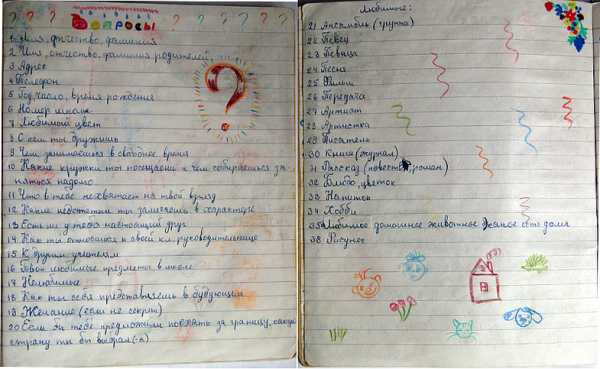 Вопросы
1. Имя, отчество, фамилия
2 Имя, отчество, фамилия родителей
3 Адрес
4 Телефон
5 Год, число, время рождения
6 Номер школы
7 Любимый цвет
8 С кем ты дружишь
9 Чем занимаешься в свободное время
10 Какие кружки ты посещаеш и чем собираешься за-
няться надолго
11 Что в тебе нехватает на твой взгляд
12 Какие недостатки ты замечаешь в характере
13 Есть ли у тебя настоящий друг
14 Как ты относишся к своей кл. руководительнице
15 К другим учителям
16 Твои любимые предметы в школе
17 Нелюбимые
18 Как ты себя представляешь в будующем
19 Желание (если не секрет)
20 Если бы тебе предложили поехать за границу, какую
страну ты бы выбрал(-а)
Любимые:
21 Ансамбль (группа)
22 Певец
23 Певица
24 Песня
25 Фильм
26 Передача
27 Артист
28 Артистка
29 Писатель
30 Книга (журнал)
31 Рассказ (повесть, роман)
32 Блюдо, цветок
33 Напиток
34 Хобби
35 Любимое домашнее животное Какое есть дома
36 Рисунок